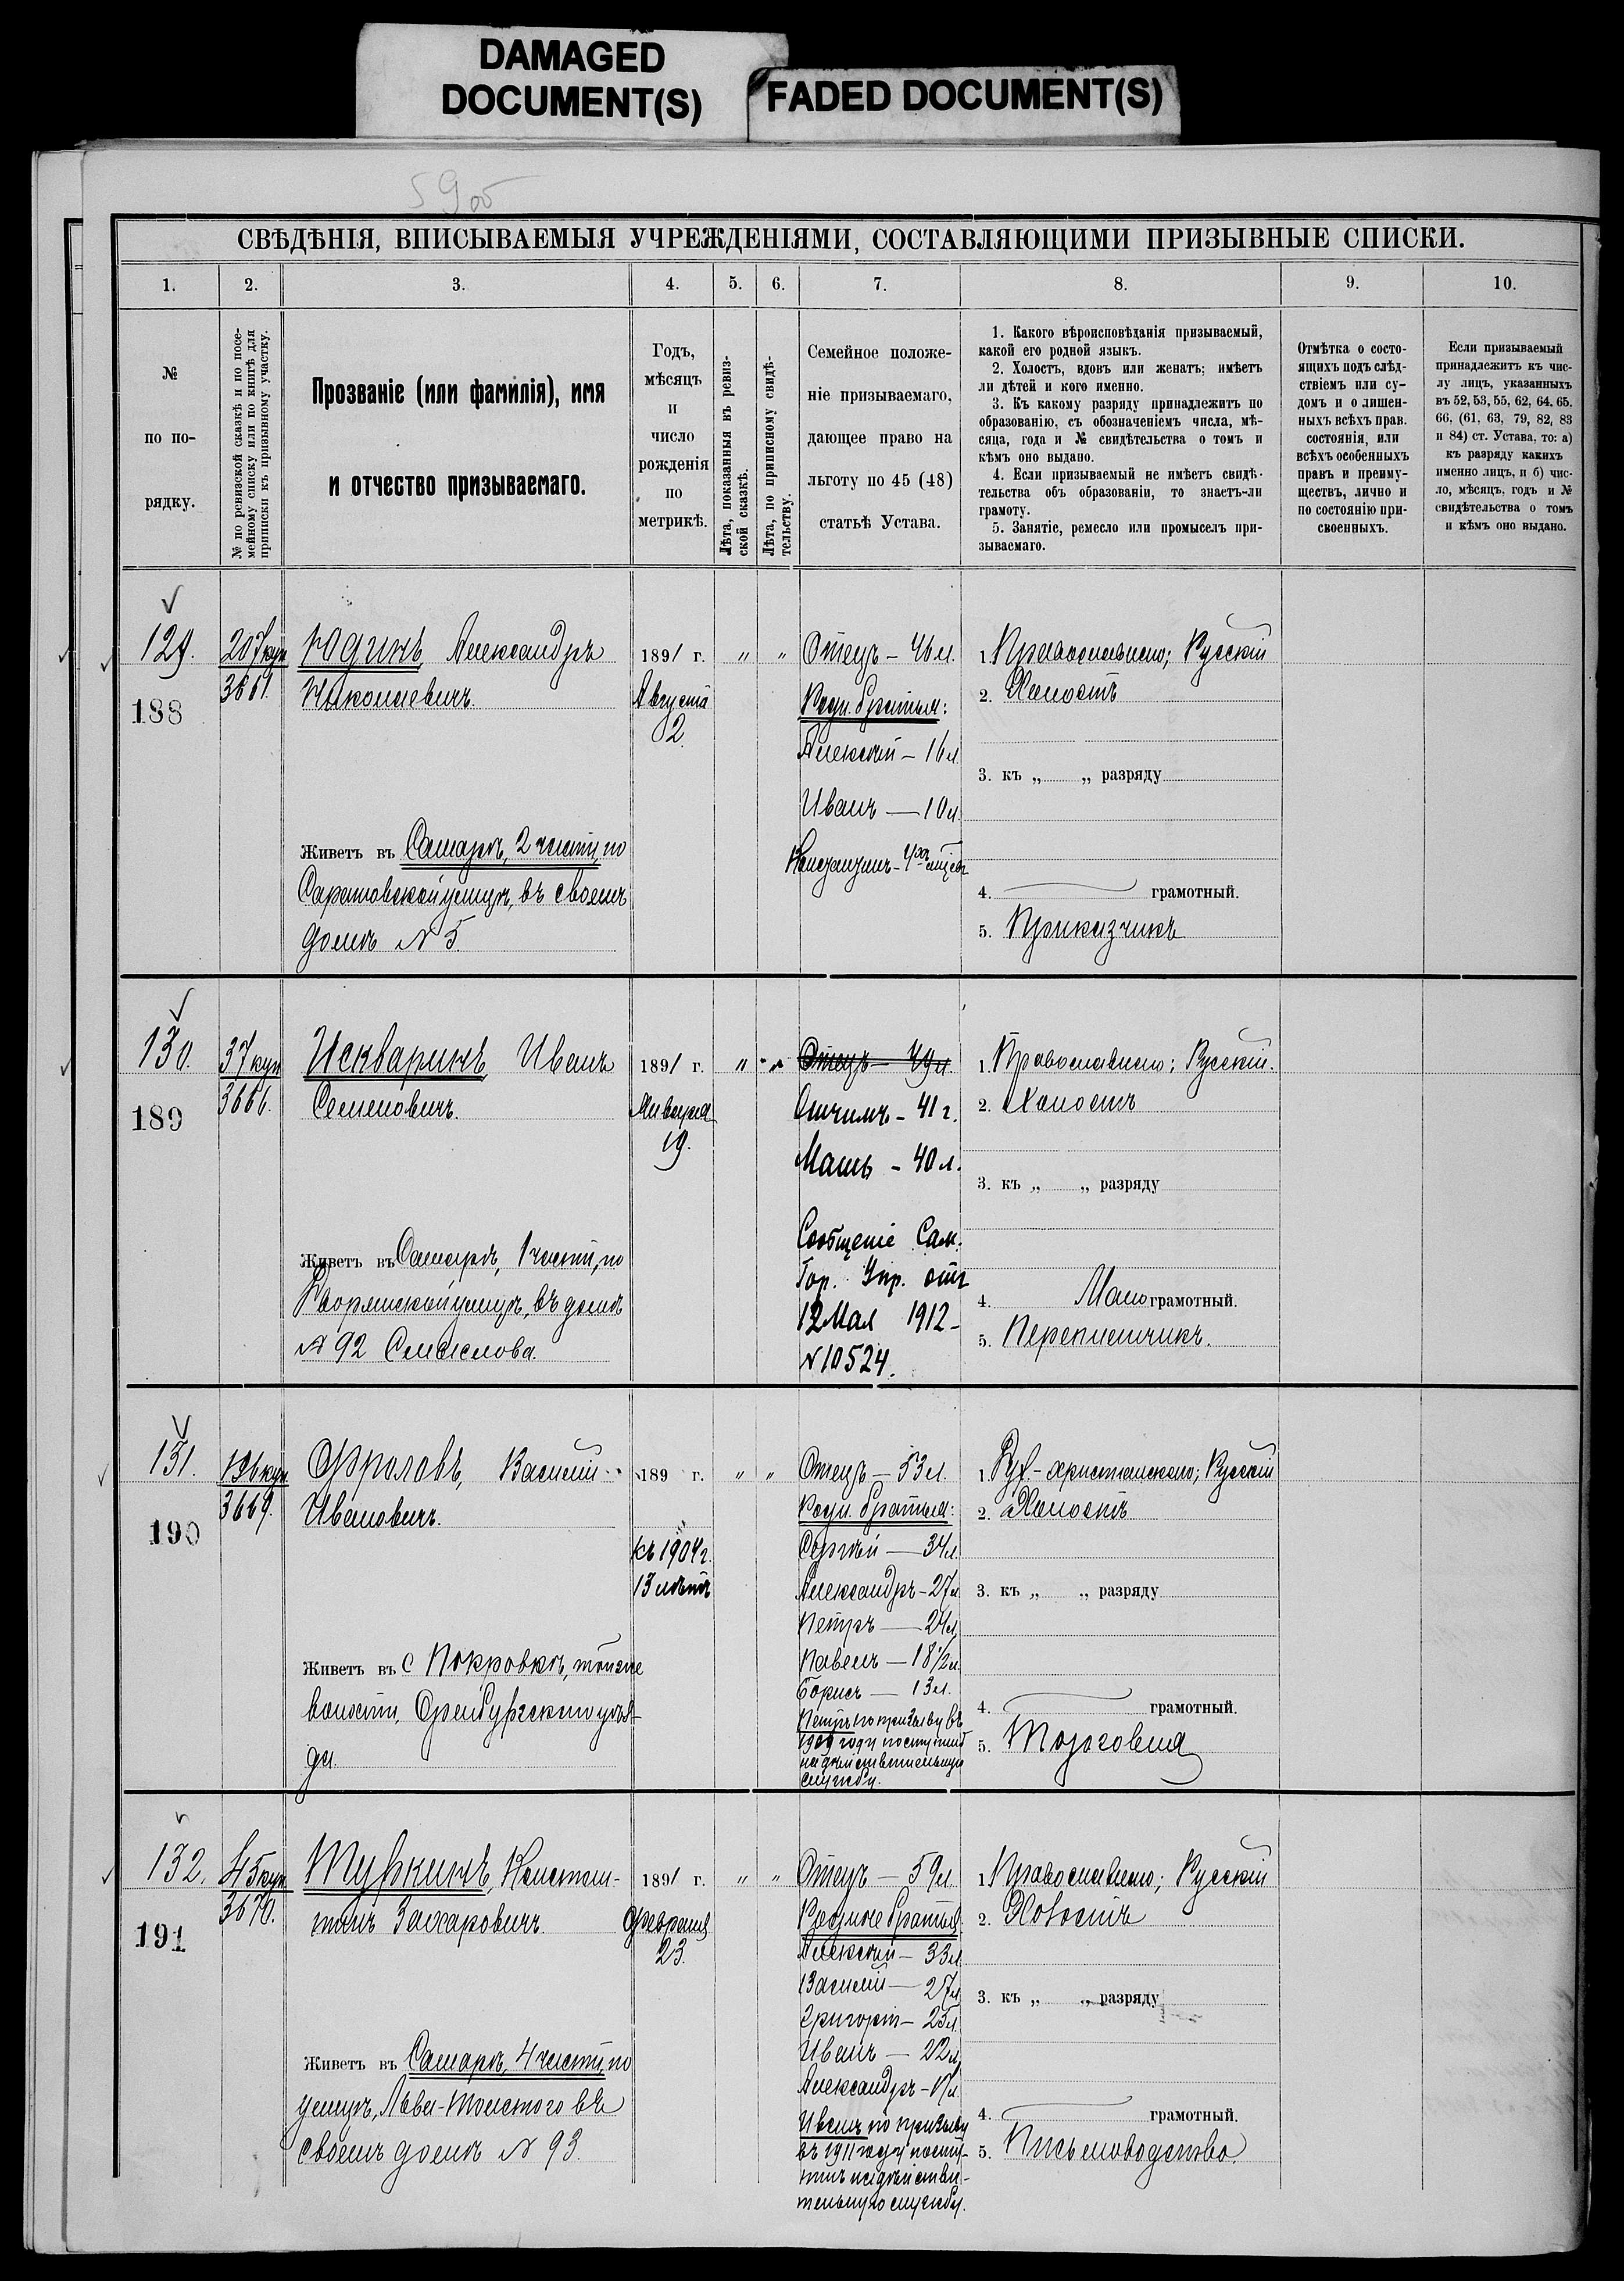 DAMAGED
DOCUMENT(S)
FADED DOCUMENT(S)
СВѢДѢНІЯ, ВПИСЫВАЕМЫЯ УЧРЕЖДЕНІЯМИ, СОСТАВЛЯЮЩИМИ ПРИЗЫВНЫЕ СПИСКИ.
1. 2. 3. 4. 5. 6. 7. 8. 9. 10.
№
по по-
рядку.
№ по ревизской сказкѣ и по посе-
мейному списку или по книгѣ для
приписки къ призывному участку.
Прозваніе (или фамилія), имя
и отчество призываемаго.
Годъ,
мѣсяцъ
и
число
рожденія
по
метрикѣ.
Лѣта, показанныя въ ревиз-
ской сказкѣ.
Лѣта, по приписному свидѣ-
тельству.
Семейное положе-
ніе призываемаго,
дающее право на
льготу по 45 (48)
статьѣ Устава.
1. Какого вѣроисповѣданія призываемый,
какой его родной языкъ.
2. Холостъ, вдовъ или женатъ; имѣетъ
ли дѣтей и кого именно.
3. Къ какому разряду принадлежитъ по
образованію, съ обозначеніемъ числа, мѣ-
сяца, года и № свидѣтельства о томъ и
кѣмъ оно выдано.
4. Если призываемый не имѣетъ свидѣ-
тельства объ образованіи, то знаетъ-ли
грамоту.
5. Занятіе, ремесло или промыселъ при-
зываемаго.
Отмѣтка о состо-
ящихъ подъ слѣд-
ствіемъ или су-
домъ и о лишен-
ныхъ всѣхъ прав.
состоянія, или
всѣхъ особенныхъ
правъ и преиму-
ществъ, лично и
по состоянію при-
своенныхъ.
Если призываемый
принадлежитъ къ чис-
лу лицъ, указанныхъ
въ 52, 53, 55, 62, 64. 65.
66. (61, 63, 79, 82, 83
и 84) ст. Устава, то: а)
къ разряду какихъ
именно лицъ, и б) чис-
ло, мѣсяцъ, годъ и №
свидѣтельства о томъ
и кѣмъ оно выдано.
129.
188
207 куп
3661.
Юдинъ Александръ
Николаевичъ.
Живетъ въ Самарѣ, 2 части, по
Саратовской улицѣ, въ своемъ
домѣ № 5.
1891 г.
Августа
2.
" "
Отецъ – 46 л.
Родн. братья:
Алексѣй – 16 л.
Иванъ — 10 л.
1. Православнаго; Русскій
2. Холостъ
3. къ „ „ разряду
4. грамотный.
5. Приказчикъ
130.
189
37 куп
3666.
Искваринъ Иванъ
Семеновичъ.
Живетъ въ Самарѣ, 1 части, по
Дворянской улицѣ, въ домѣ
№ 92 Смыслова.
1891 г.
Января
19.
" "
Отецъ – 49 л.
Отчимъ – 41 г.
Мать – 40 л.
Сообщеніе Сам.
Гор. Упр. отъ
12 Мая 1912 –
№ 10524.
1. Православнаго; Русскій.
2. Холостъ
3. къ „ „ разряду
4. Мало грамотный.
5. Переписчикъ.
131.
190
196 куп
3669.
Фроловъ, Василій
Ивановичъ.
Живетъ въ с Покровкѣ, тойже
волости, Оренбургскаго уѣз-
да.
189 г.
къ 1904 г.
13 лѣтъ
" "
Отецъ — 53 л.
Родн. братья:
Сергѣй — 34 л.
Александръ – 27 л.
Петръ — 24 л.
Павелъ — 18 1/2 л.
Борисъ — 13 л.
Петръ по призыву въ
1909 году поступилъ
на дѣйствительную
службу.
1. Рус.-христіанскаго; Русскій
2. Холостъ
3. къ „ „ разряду
4. грамотный.
5. Торговля
132.
191
45 куп.
3670.
Тупкинъ, Констан-
тинъ Захаровичъ.
Живетъ въ Самарѣ, 4 части, по
улицѣ, Льва-Толстого въ
своемъ домѣ № 93.
1891 г.
Февраля
23.
" "
Отецъ — 59 л.
Родные братья
Алексѣй – 33 л.
Василій — 27 л.
Григорій – 25 л.
Иванъ — 22 л.
Александръ – 17 л.
Иванъ по призыву
въ 1911 году посту-
пилъ на дѣйстви-
тельную службу.
1. Православнаго; Русскій
2. Холостъ
3. къ „ „ разряду
4. грамотный.
5. Письмоводство.